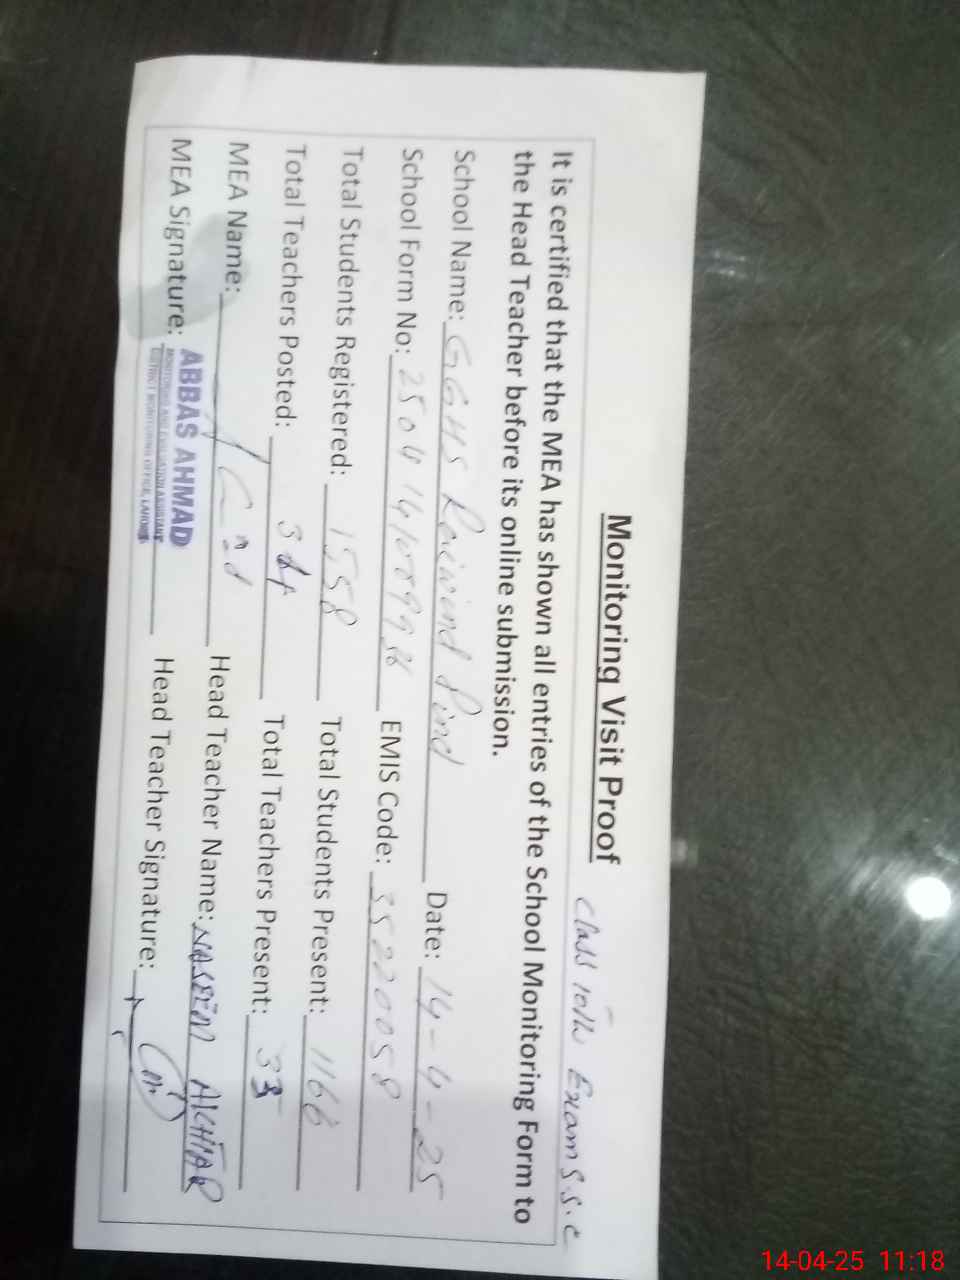 Monitoring Visit Proof
Class 10th Exam S.S.C
It is certified that the MEA has shown all entries of the School Monitoring Form to
the Head Teacher before its online submission.
School Name: GGHS Raiwind Pind Date: 14-4-25
School Form No: EMIS Code: 35220058
Total Students Registered: 1558 Total Students Present: 1166
Total Teachers Posted: 34 Total Teachers Present: 33
MEA Name: Head Teacher Name: NASEEM AKHTAR
MEA Signature: Head Teacher Signature:
ABBAS AHMAD
MONITORING AND EVALUATION ASSISTANT
DISTRICT MONITORING OFFICE, LAHORE
14-04-25 11:18